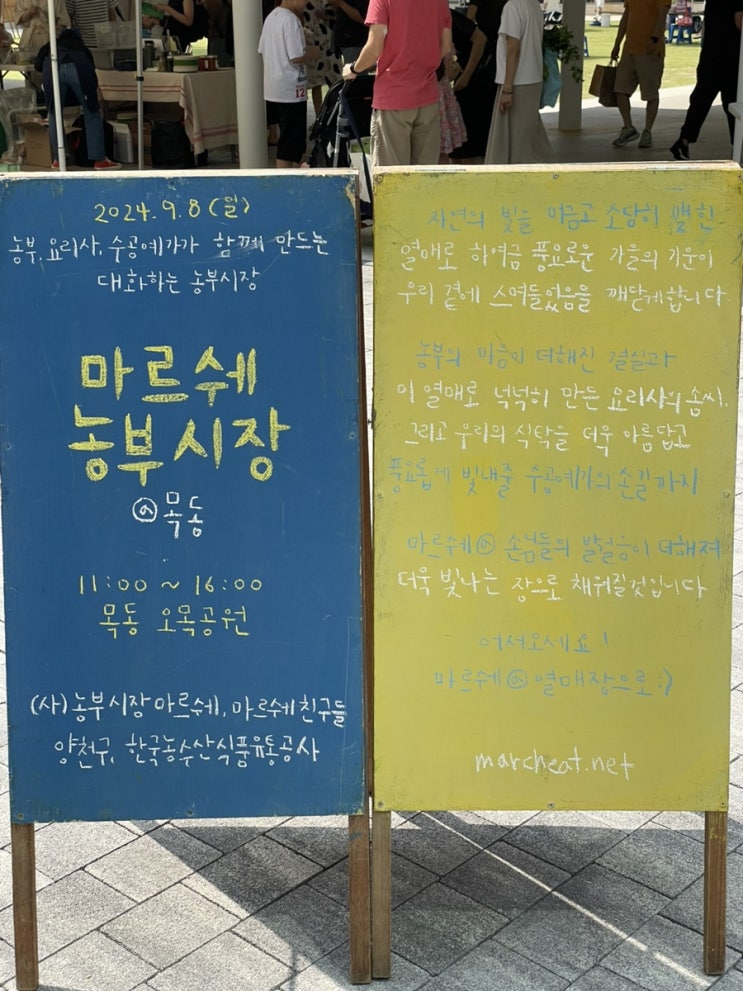 2024.9.8(일)
농부, 요리사, 수공예가가 함께 만드는
대화하는 농부시장
마르쉐
농부시장
@목동
11:00 ~ 16:00
목동 오목공원
(사)농부시장 마르쉐, 마르쉐친구들
양천구, 한국농수산식품유통공사
자연의 빛을 머금고 소담히 맺힌
열매로 하여금 풍요로운 가을의 기운이
우리 곁에 스며들었음을 깨닫게합니다.
농부의 마음이 더해진 결실과
이 열매로 넉넉히 만든 요리사의 솜씨,
그리고 우리의 식탁을 더욱 아름답고
풍요롭게 빛내줄 수공예가의 손길까지
마르쉐@ 손님들의 발걸음이 더해져
더욱 빛나는 장으로 채워질것입니다
어서오세요!
마르쉐@열매장으로:)
marcheat.net